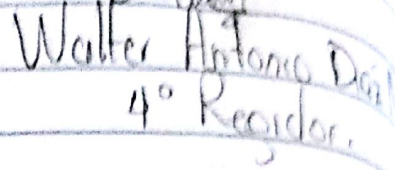 Walter Antonio
4° Regidor.